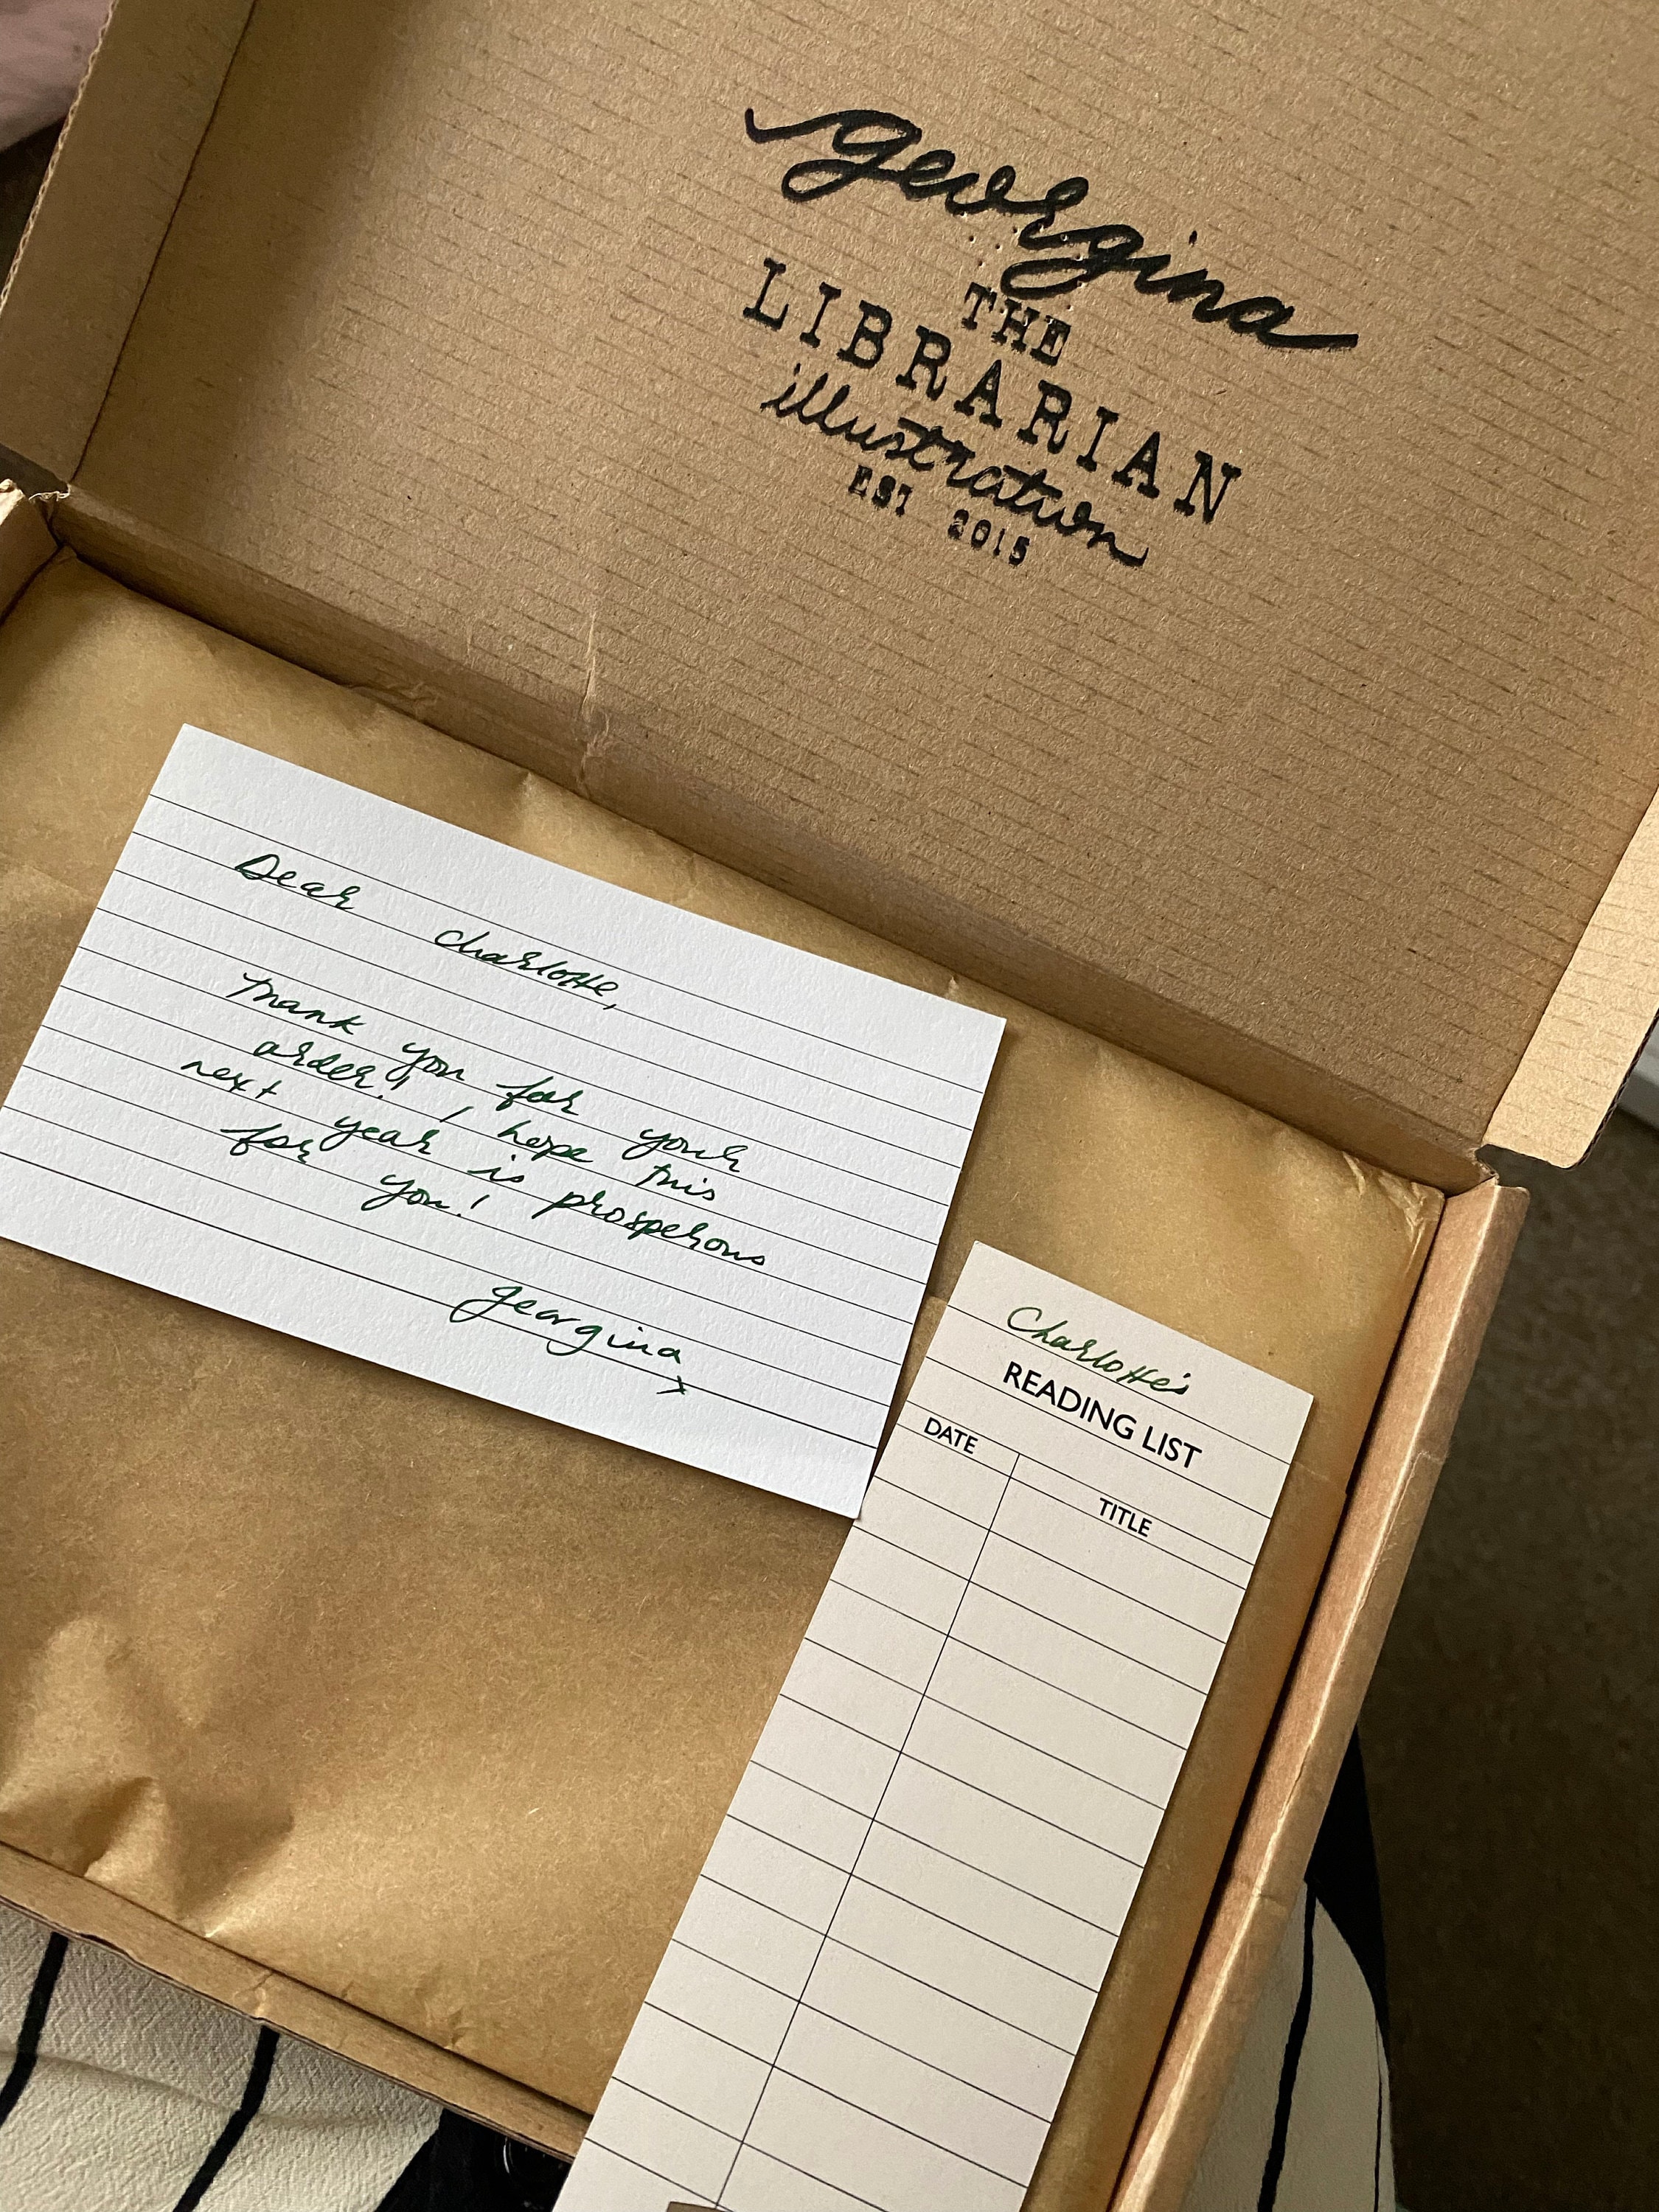 georgina
THE
LIBRARIAN
illustration
EST 2015
Dear Charlotte,
Thank you for your
order! I hope this
next year is prosperous
for you!
georgina
x
Charlotte's
READING LIST
DATE TITLE